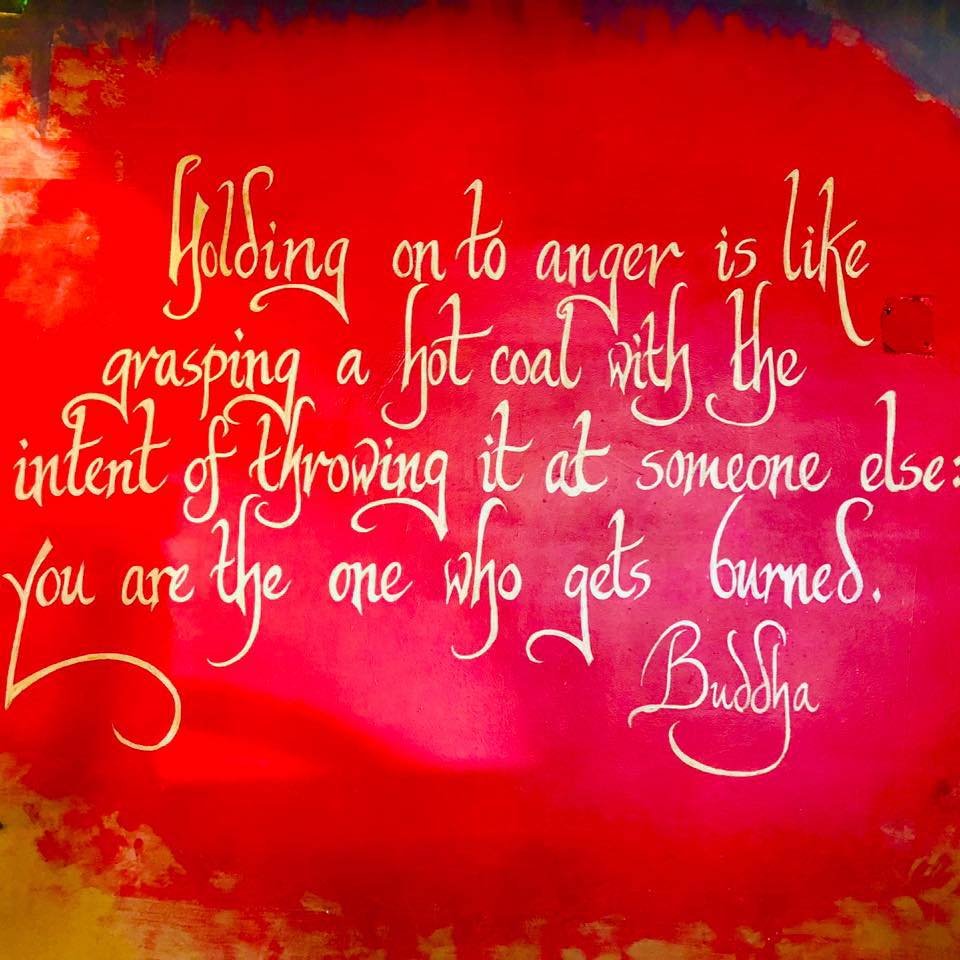 Holding on to anger is like
grasping a hot coal with the
intent of throwing it at someone else:
you are the one who gets burned.
Buddha